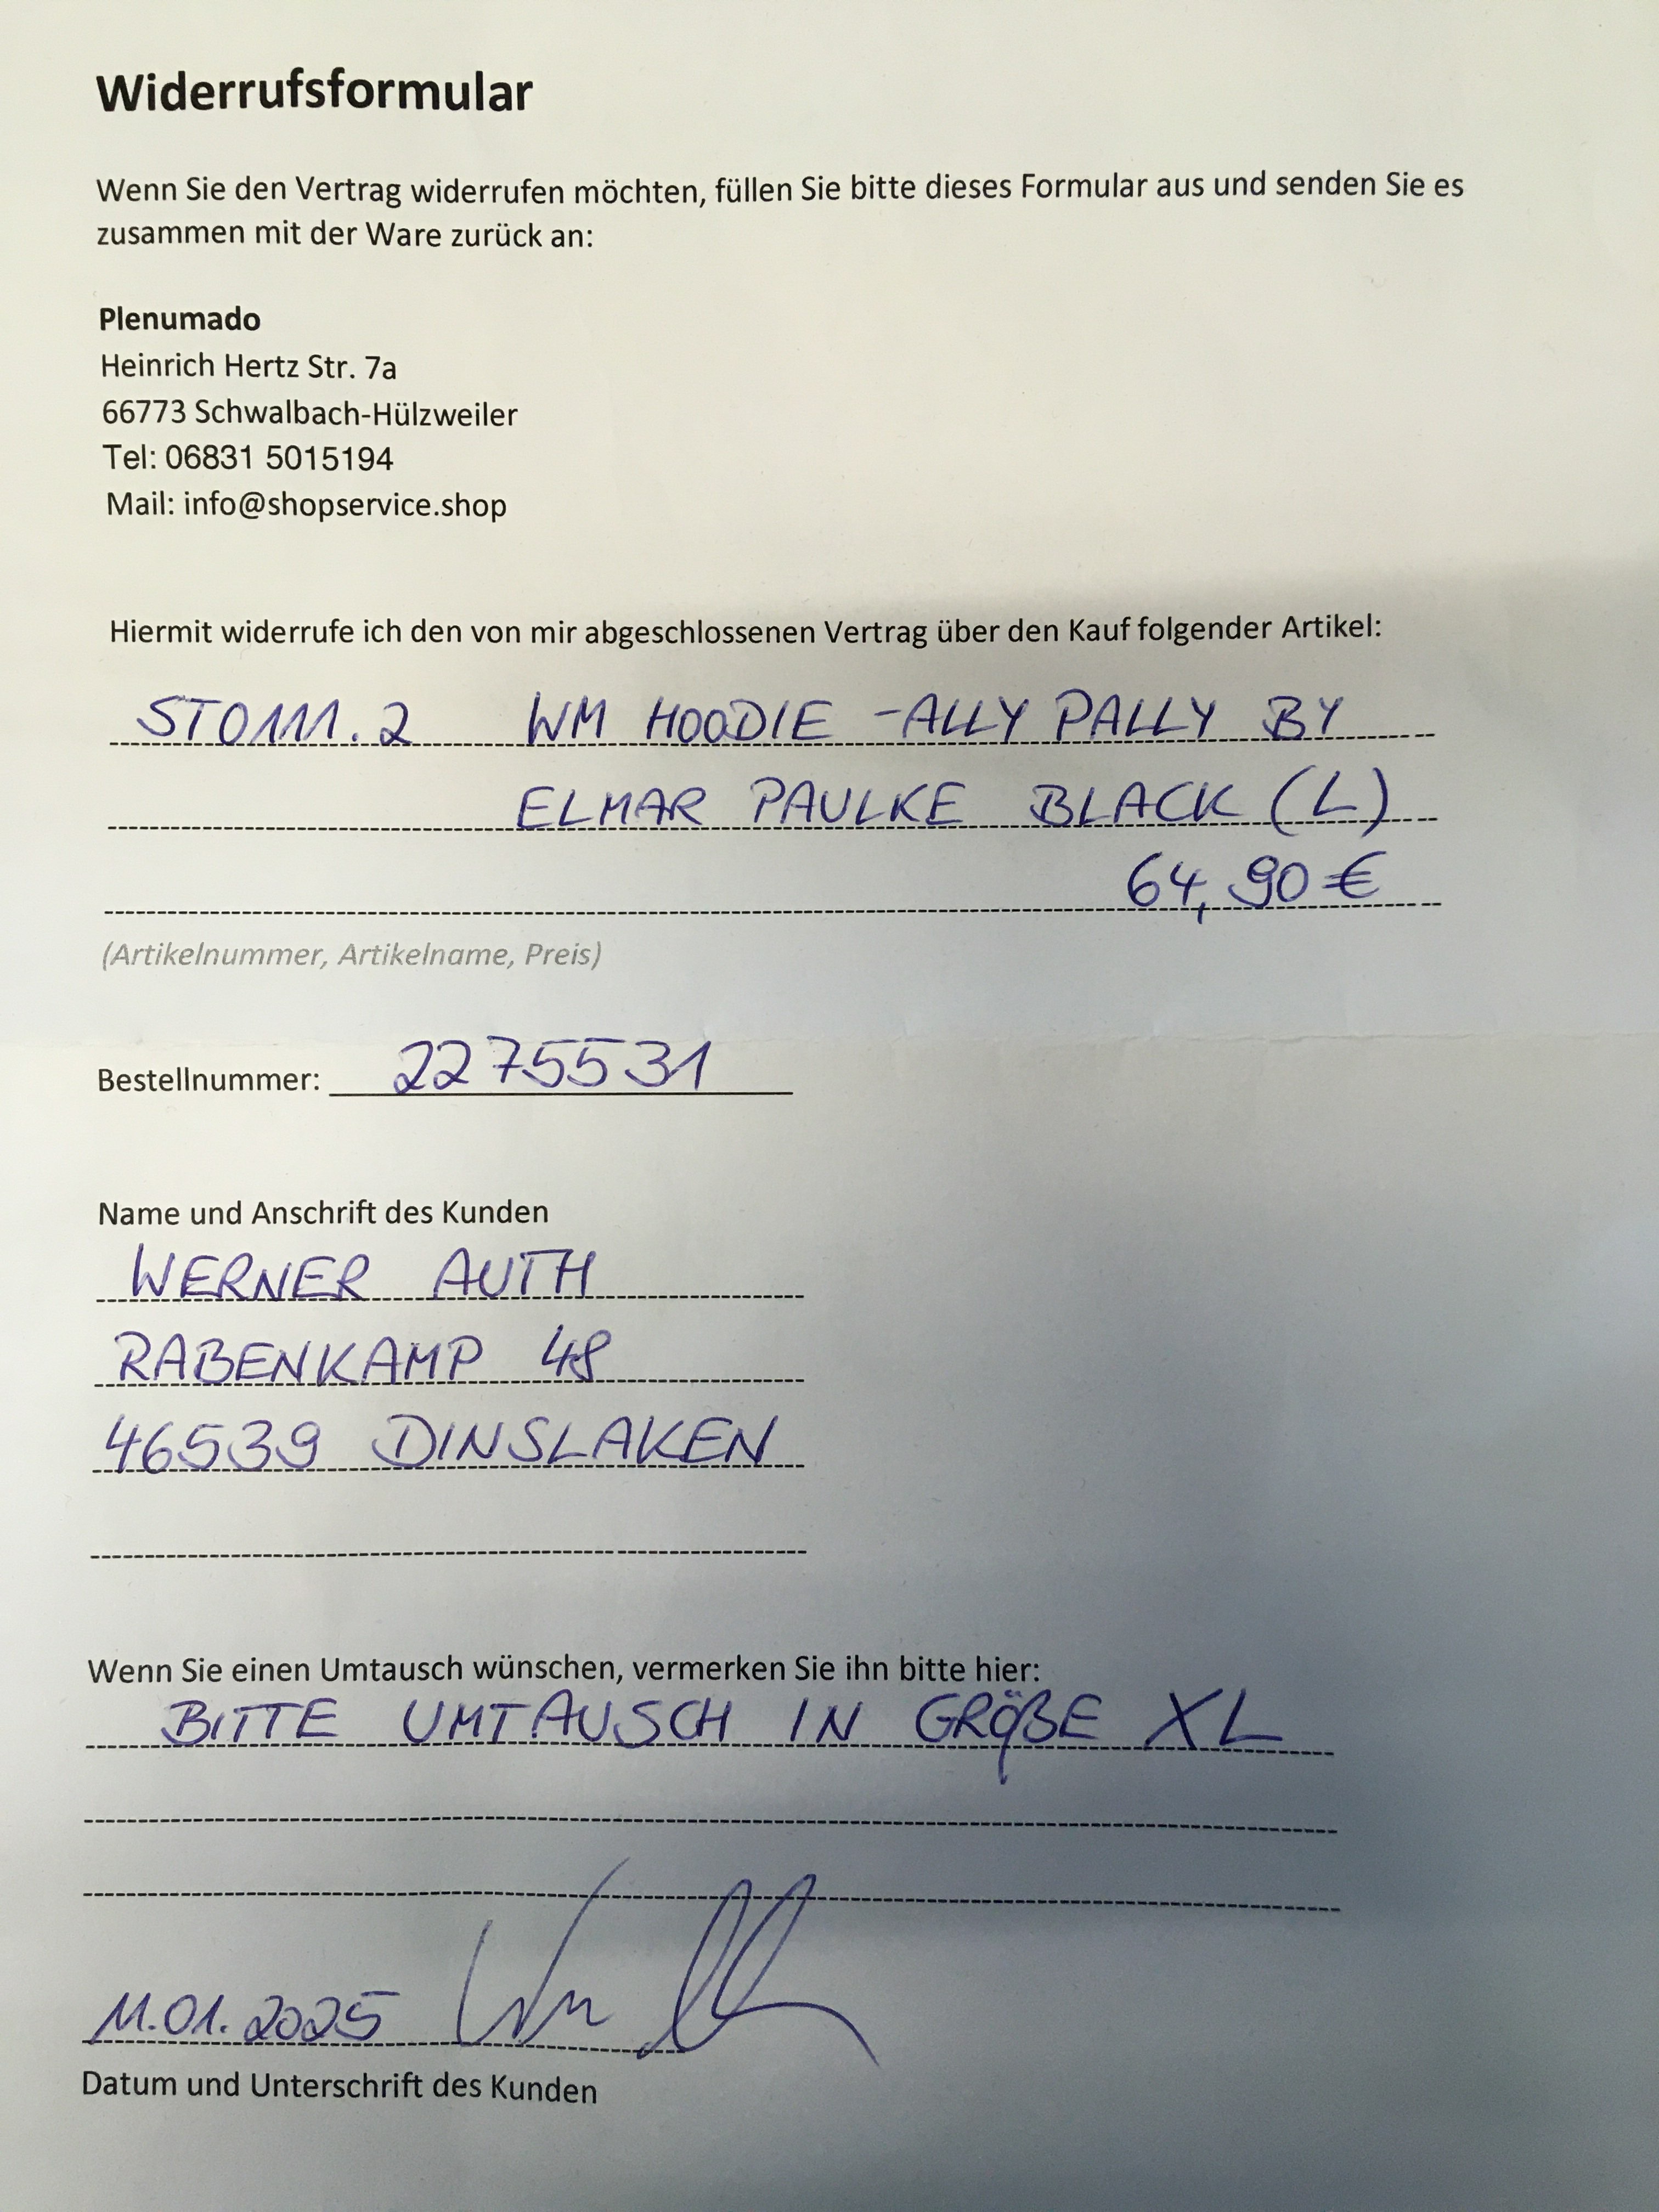 Widerrufsformular
Wenn Sie den Vertrag widerrufen möchten, füllen Sie bitte dieses Formular aus und senden Sie es
zusammen mit der Ware zurück an:
Plenumado
Heinrich Hertz Str. 7a
66773 Schwalbach-Hülzweiler
Tel: 06831 5015194
Mail: info@shopservice.shop
Hiermit widerrufe ich den von mir abgeschlossenen Vertrag über den Kauf folgender Artikel:
STO111.2 WM HOODIE -ALLY PALLY BY
ELMAR PAULKE BLACK (L)
64,90 €
(Artikelnummer, Artikelname, Preis)
Bestellnummer: 2275531
Name und Anschrift des Kunden
WERNER AUTH
RABENKAMP 48
46539 DINSLAKEN
Wenn Sie einen Umtausch wünschen, vermerken Sie ihn bitte hier:
BITTE UMTAUSCH IN GRÖßE XL
11.01.2025
Datum und Unterschrift des Kunden